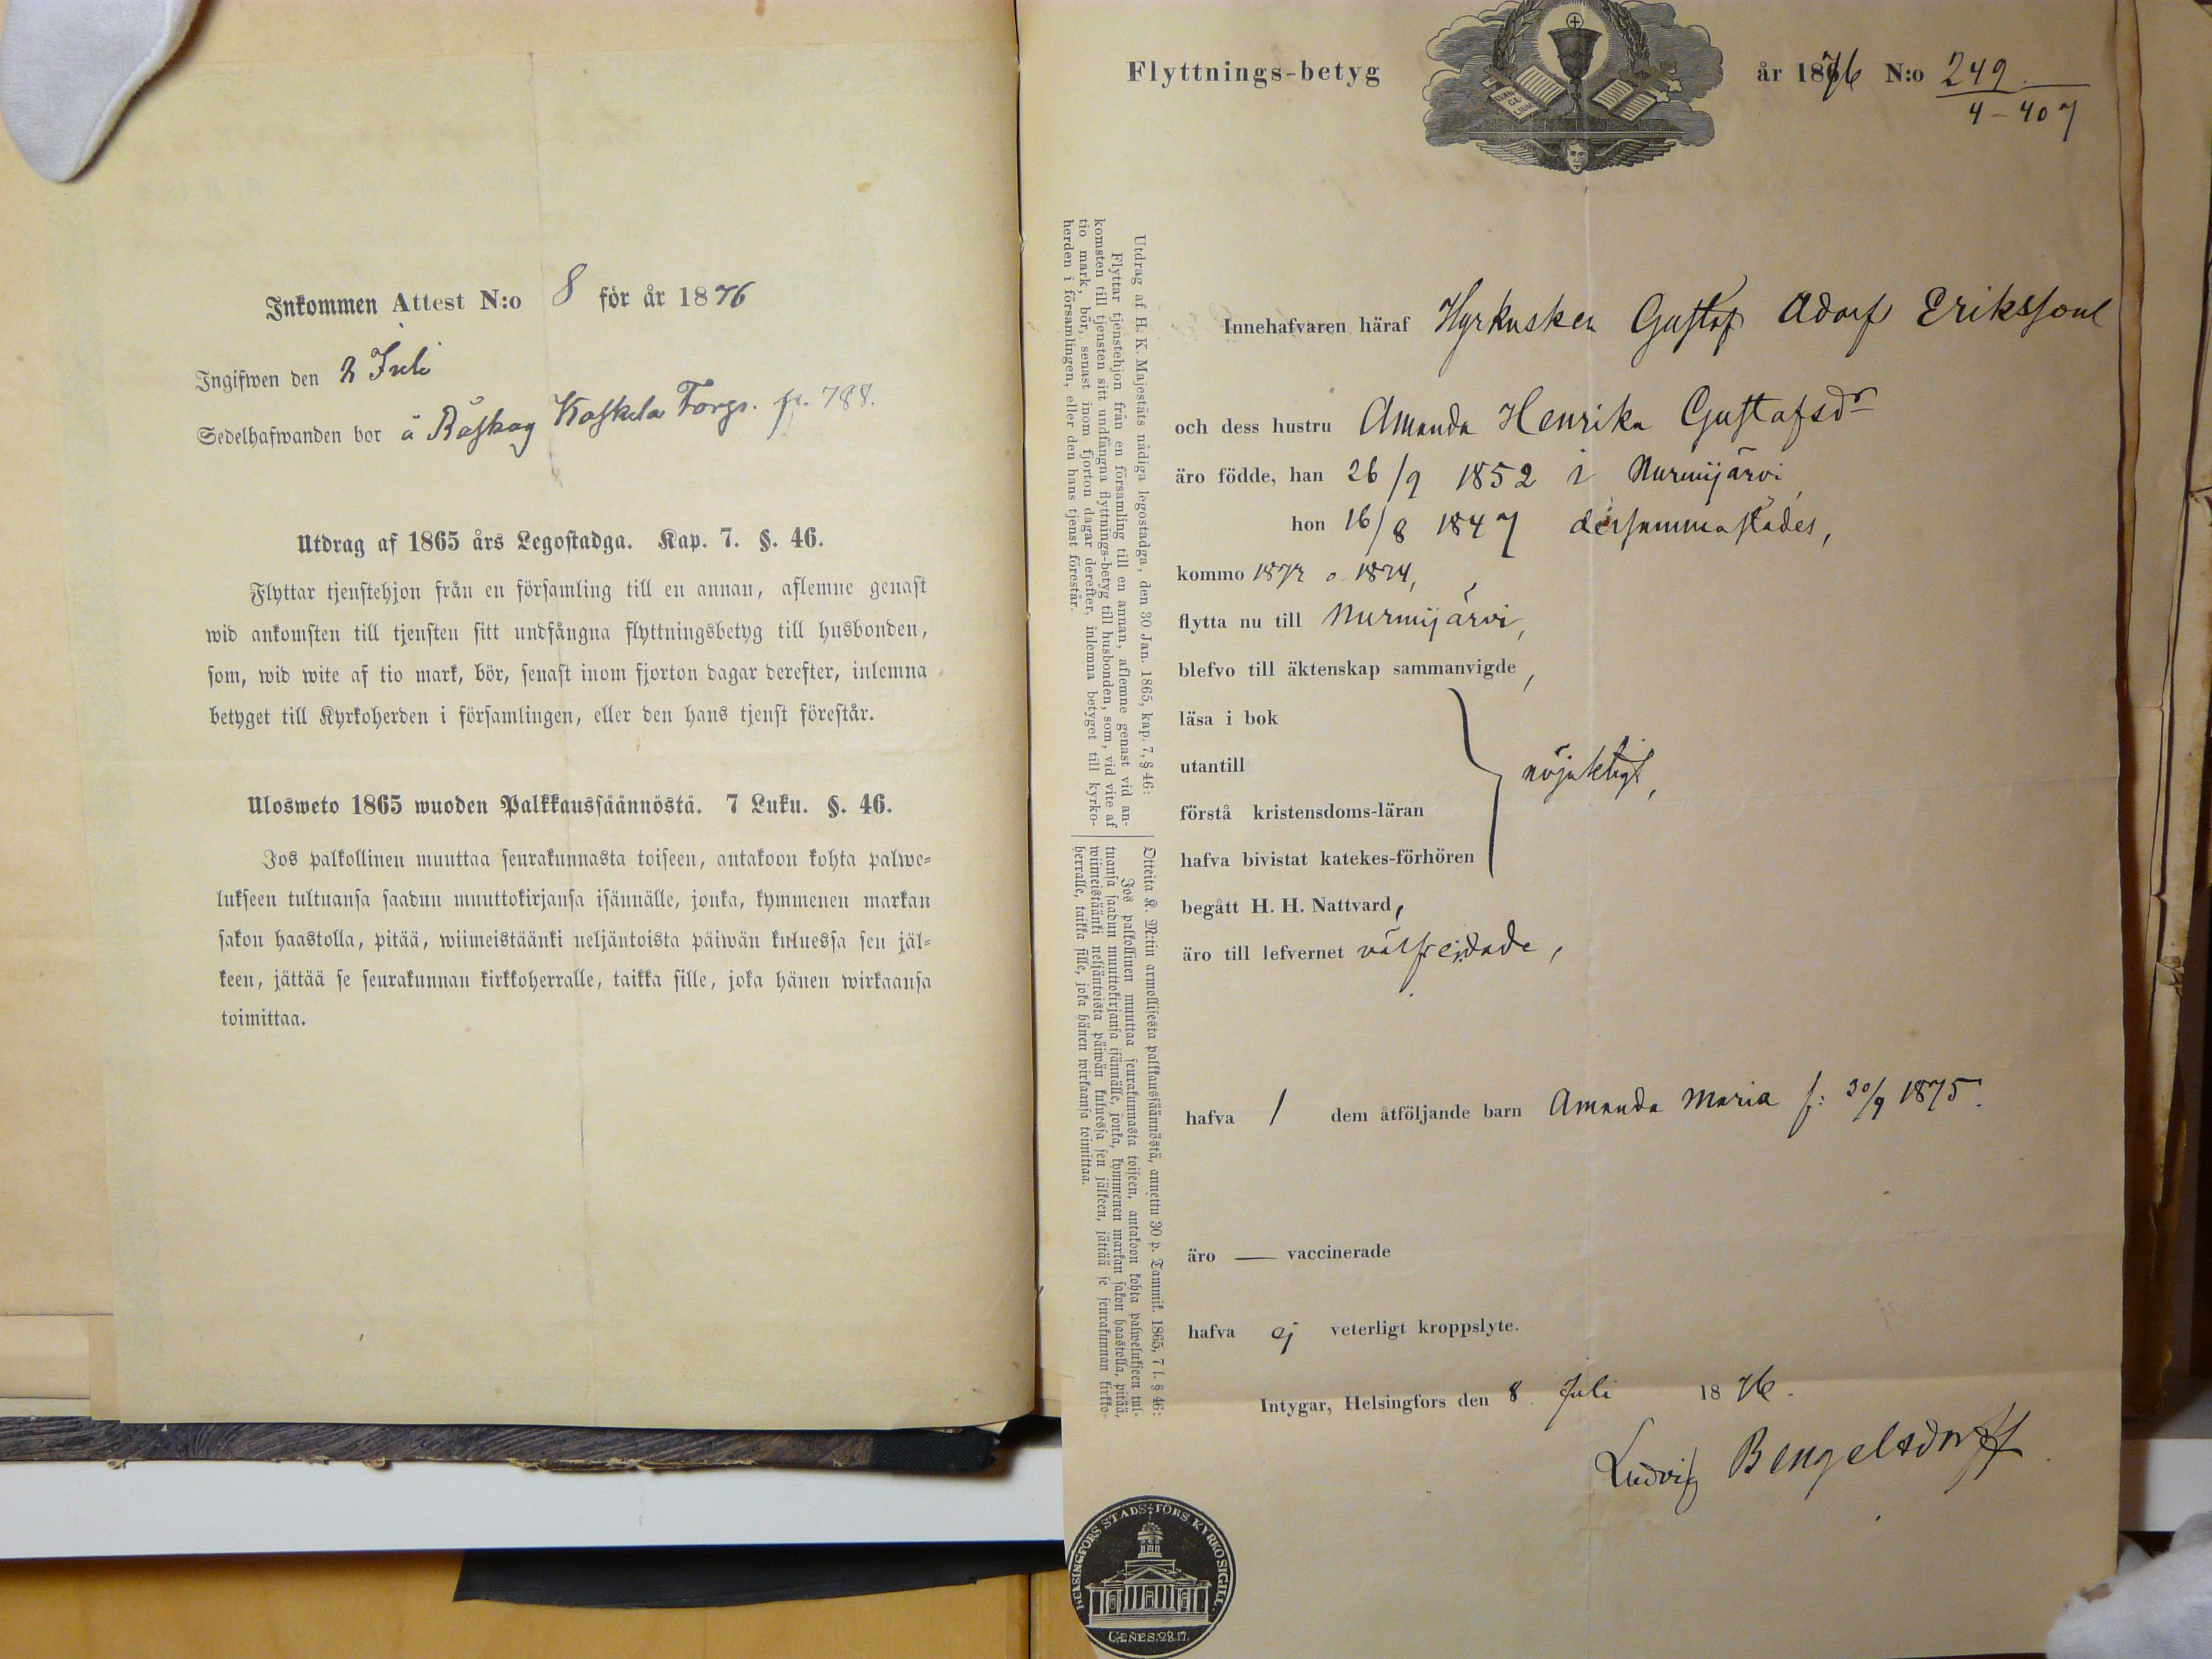 Inkommen Attest N:o 8 för år 1876
Ingifwen den 2 Juli
Sedelhafwanden bor å Råskog Koskela Torgs. p. 788.
Utdrag af 1865 års Legostadga. Kap. 7. §. 46.
Flyttar tjenstehjon från en församling till en annan, aflemne genast
wid ankomsten till tjensten sitt undfångna flyttningsbetyg till husbonden,
som, wid wite af tio mark, bör, senast inom fjorton dagar derefter, inlemna
betyget till Kyrkoherden i församlingen, eller den hans tjenst förestår.
Ulosweto 1865 wuoden Palkkaussäännöstä. 7 Luku. §. 46.
Jos palkollinen muuttaa seurakunnasta toiseen, antakoon kohta palwe-
lukseen tultuansa saadun muuttokirjansa isännälle, jonka, kymmenen markan
sakon haastolla, pitää, wiimeistäänki neljäntoista päiwän kuluessa sen jäl-
keen, jättää se seurakunnan kirkkoherralle, taikka sille, joka hänen wirkaansa
toimittaa.
Flyttnings-betyg
år 1876 N:o 249
4-407
Utdrag af H. K. Majestäts nådiga legostadga, den 30 Jan. 1865, kap. 7, § 46:
Flyttar tjenstehjon från en församling till en annan, aflemne genast vid an-
komsten till tjensten sitt undfångna flyttnings-betyg till husbonden, som, vid vite af
tio mark, bör, senast inom fjorton dagar derefter, inlemna betyget till kyrko-
herden i församlingen, eller den hans tjenst förestår.
Otteita K. M:tin armollisesta palkkaussäännöstä, annettu 30 p. Tammik. 1865, 7 l. § 46:
Jos palkollinen muuttaa seurakunnasta toiseen, antakoon kohta palwelukseen tul-
tuansa saadun muuttokirjansa isännälle, jonka, kymmenen markan sakon haastolla, pitää,
wiimeistäänki neljäntoista päiwän kuluessa sen jälkeen, jättää se seurakunnan kirkko-
herralle, taikka sille, joka hänen wirkaansa toimittaa.
Innehafvaren häraf Hyrkusken Gustaf Adorf Erikssons
och dess hustru Amanda Henrika Gustafsdr
äro födde, han 26/9 1852 i Nurmijärvi
hon 16/8 1847 dersammastädes,
kommo 1872 o 1874,
flytta nu till Nurmijärvi,
blefvo till äktenskap sammanvigde,
läsa i bok
utantill
nöjaktigt,
förstå kristensdoms-läran
hafva bivistat katekes-förhören
begått H. H. Nattvard,
äro till lefvernet välfrejdade,
hafva 1 dem åtföljande barn Amanda Maria f: 30/9 1875.
äro — vaccinerade
hafva ej veterligt kroppslyte.
Intygar, Helsingfors den 8 Juli 1876.
Ludvig Bengelsdorff
HELSINGFORS STADS-FÖRS KYRKOSIGILL.
GENES. 28.17.